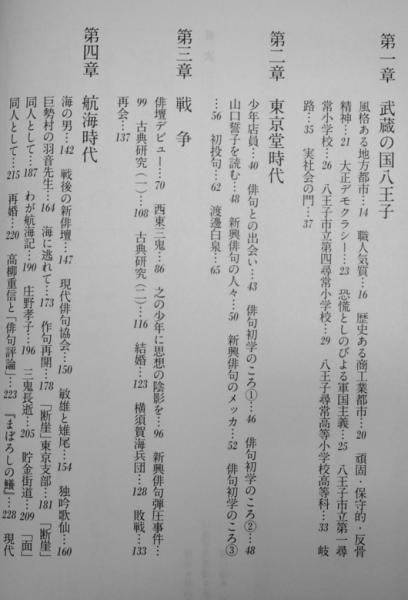 第一章 武蔵の国八王子
風格ある地方都市…14 職人気質…16 歴史ある商工業都市…20 頑固・保守的・反骨
精神…21 大正デモクラシー…23 恐慌としのびよる軍国主義…25 八王子市立第一尋
常小学校…26 八王子市立第四尋常小学校…29 八王子尋常高等小学校高等科…33 岐
路…35 実社会の門…37
第二章 東京堂時代
少年店員…40 俳句との出会い…43 俳句初学のころ①…46 俳句初学のころ②…48
山口誓子を読む…48 新興俳句の人々…50 新興俳句のメッカ…52 俳句初学のころ③
…56 初投句…62 渡邊白泉…65
第三章 戦争
俳壇デビュー…70 西東三鬼…86 之の少年に思想の陰影を…96 新興俳句弾圧事件…
99 古典研究(一)…108 古典研究(二)…116 結婚…123 横須賀海兵団…128 敗戦…133
再会…137
第四章 航海時代
海の男…142 戦後の新俳壇…147 現代俳句協会…150 敏雄と雄尾…154 独吟歌仙…160
巨勢村の羽音先生…164 海に逃れて…173 作句再開…178 「断崖」東京支部…181 「断崖」
同人として…187 わが航海記…190 庄野孝子…196 三鬼長逝…205 貯金街道…209 「面」
同人として…215 再婚…220 高柳重信と「俳句評論」…223 『まぼろしの鱶』…228 現代